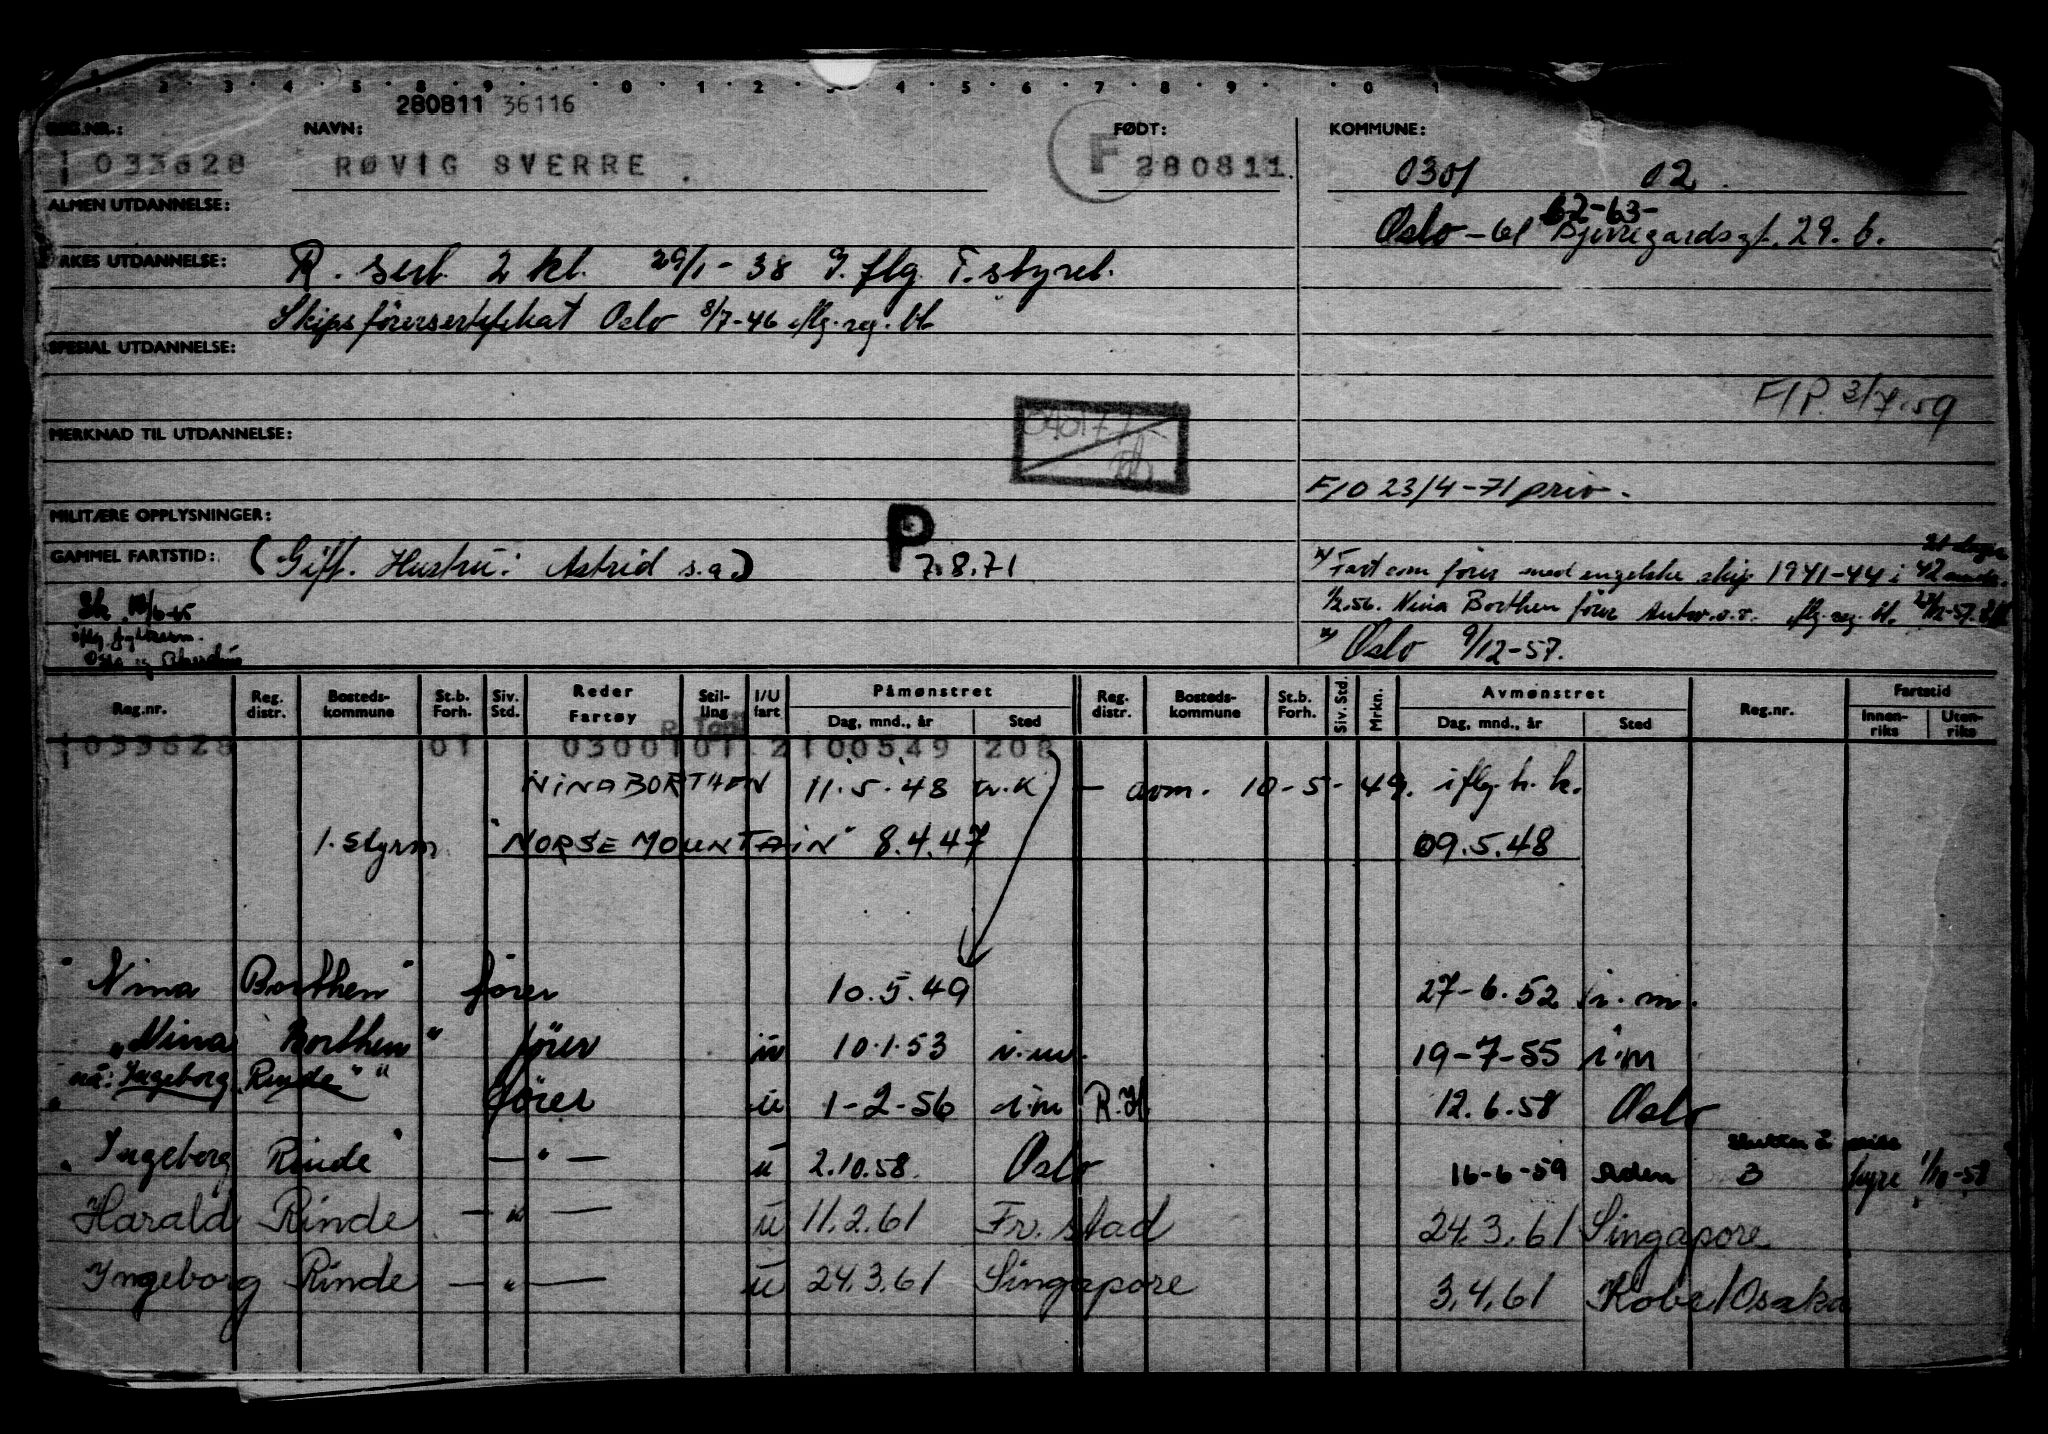 280811 36116
REG.NR.: NAVN: FØDT: KOMMUNE:
033628 RØVIG SVERRE. F 280811. 0301 02
ALMEN UTDANNELSE:
62-63-
Oslo - 61 Bjerregardsgt. 29. b.
YRKES UTDANNELSE: R. sert. 2 kl. 29/1-38 I. flg. T. styrel.
Skipsförersertifikat Oslo 8/7-46 iflg. reg. bl.
SPESIAL UTDANNELSE:
F/P. 3/7.59
MERKNAD TIL UTDANNELSE:
F/O 23/4-71 priv.
MILITÆRE OPPLYSNINGER:
GAMMEL FARTSTID: (Gift. Hustru: Astrid s.a.) P 7.8.71
x) Fart som förer med engelske skip 1941-44 i 42 mndr.
1/2.56. Nina Borthen förer Antw. o.r. iflg. reg. bl.
x) Oslo 9/12-57.
Reg.nr. Reg. distr. Bosteds-kommune St.b. Forh. Siv. Std. Reder Fartøy Stil-ling I/U fart Påmønstret Dag, mnd., år Sted Reg. distr. Bosteds-kommune St.b. Forh. Siv. Std. Mrkn. Avmønstret Dag, mnd., år Sted Reg.nr. Fartstid Innen-riks Uten-riks
033628 01 0300101 2100549 208
NINA BORTHEN 11.5.48 u.k - avm. 10-5-49. iflg. h. k.
1. styrm "NORSE MOUNTAIN" 8.4.47 09.5.48
"Nina Borthen" förer 10.5.49 27-6.52 i. m.
"Nina Borthen" förer u 10.1.53 i.m. 19-7-55 i.m
nå: Ingeborg Rinde"
förer u 1-2-56 i.m R.H 12.6.58 Oslo
"Ingeborg Rinde" — " — u 2.10.58. Oslo 16-6-59 Aden 3 hyre 1/10-58
Harald Rinde — " — u 11.2.61 Fr.stad 24.3.61 Singapore
Ingeborg Rinde — " — u 24.3.61 Singapore 3.4.61 Kobe/Osaka